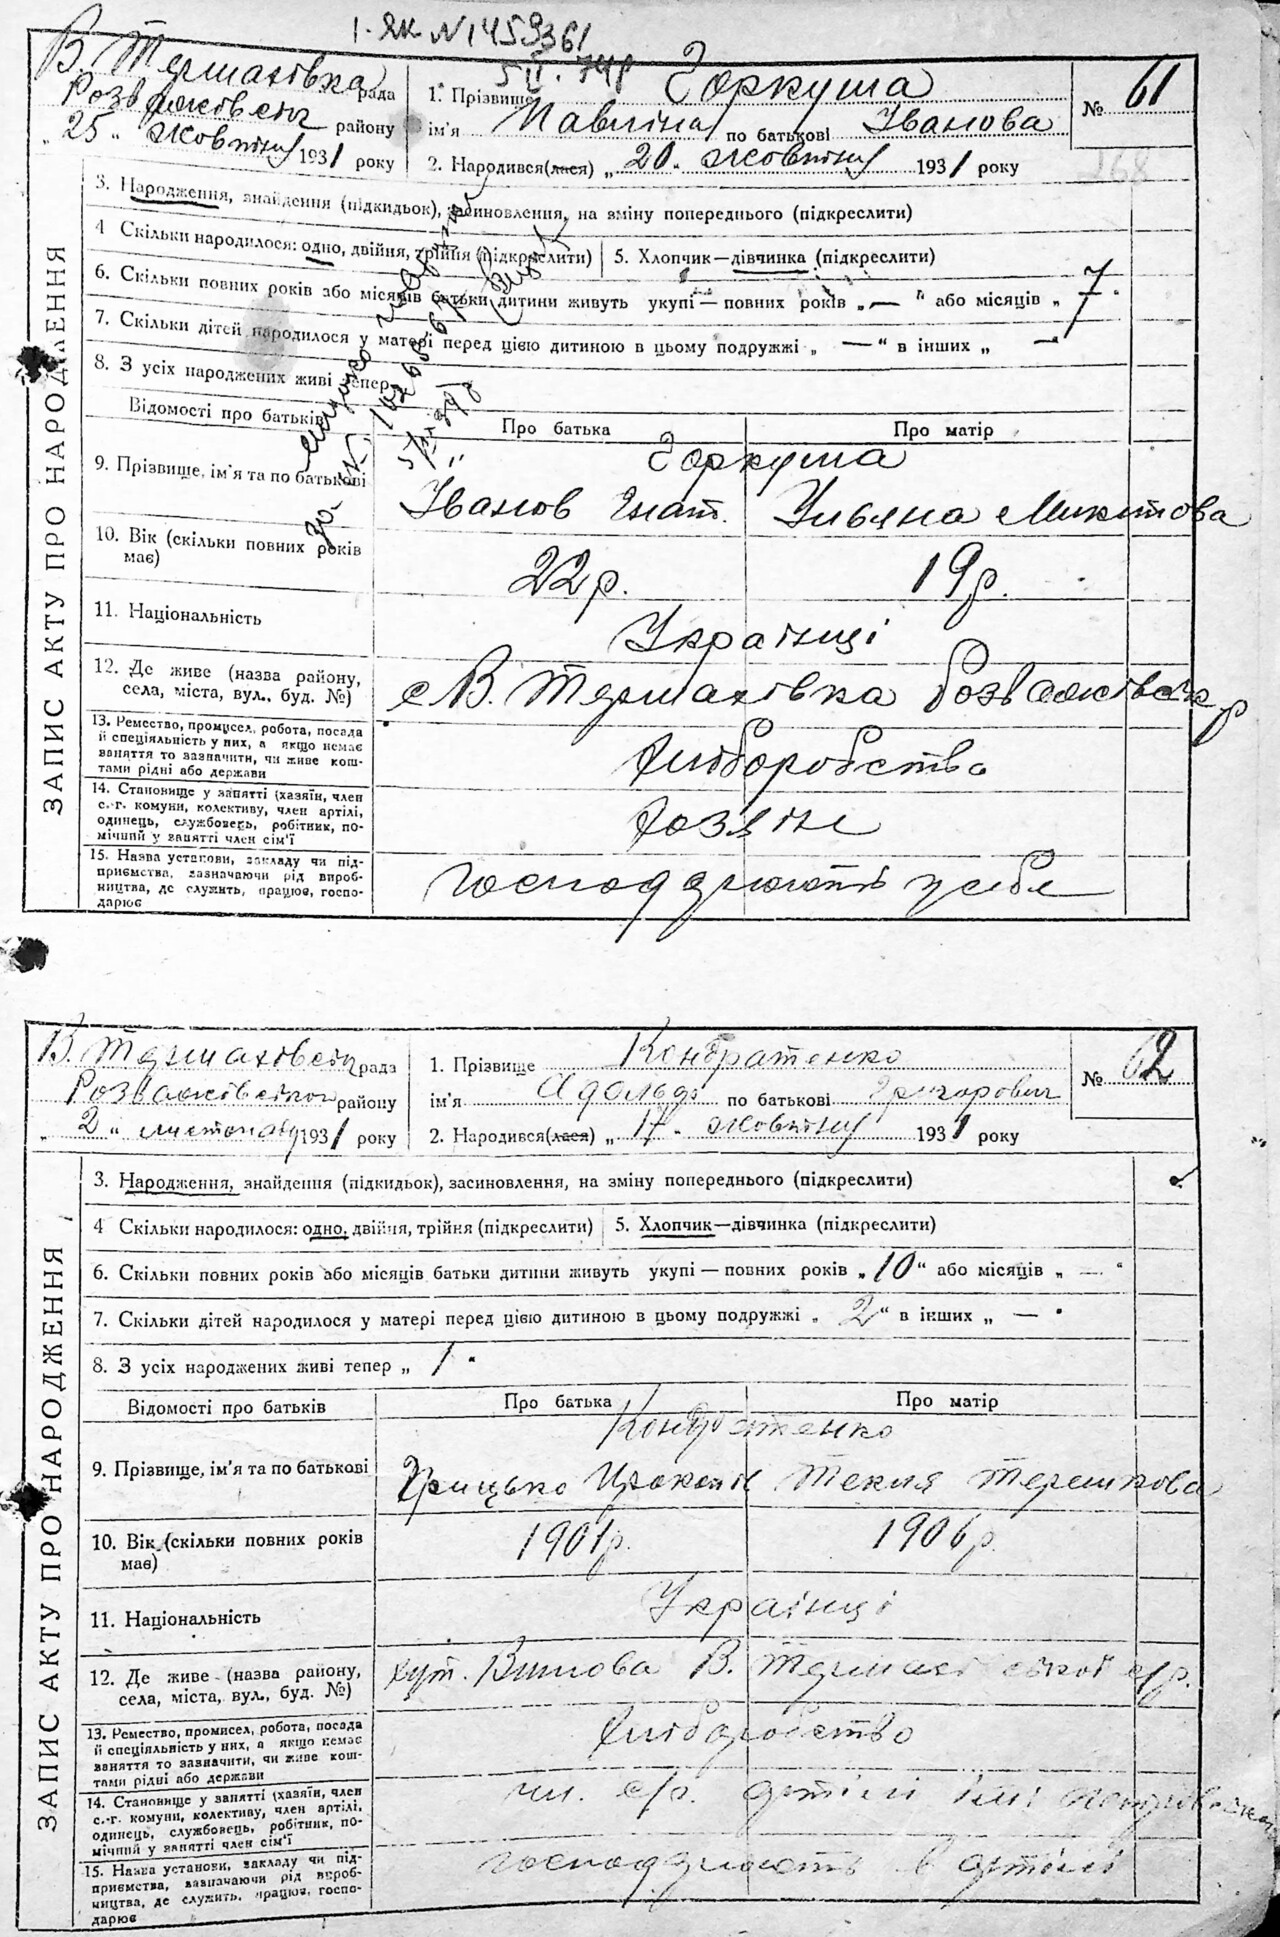 І-ЯК №1459361
5/ІІ.74р
В. Термахівка рада
Розважівськ району
„25“ жовтня 1931 року
1. Прізвище Горкуша
ім'я Павліна по батькові Іванова
2. Народився(лася) „20“ жовтня 1931 року
№ 61
268
ЗАПИС АКТУ ПРО НАРОДЖЕННЯ
3. Народження, знайдення (підкидьок), засиновлення, на зміну попереднього (підкреслити)
4 Скільки народилося: одно, двійня, трійня (підкреслити)
5. Хлопчик—дівчинка (підкреслити)
6. Скільки повних років або місяців батьки дитини живуть укупі — повних років „—“ або місяців „7“
7. Скільки дітей народилося у матері перед цією дитиною в цьому подружжі „—“ в інших „—“
8. З усіх народжених живі тепер
Відомості про батьків
Про батька
Про матір
9. Прізвище, ім'я та по батькові
Горкуша
Іванов Гнат.
Ульяна Микитова
10. Вік (скільки повних років має)
22р.
19р.
11. Національність
Українці
12. Де живе (назва району, села, міста, вул., буд. №)
с В. Термахівка Розважівськ р
13. Ремество, промисел, робота, посада
й спеціяльність у них, а якщо немає
заняття то зазначити, чи живе кош-
тами рідні або держави
Хліборобство
14. Становище у занятті (хазяїн, член
с.-г. комуни, колективу, член артілі,
одинець, службовець, робітник, по-
мічний у занятті член сім'ї
Хозяїн
15. Назва установи, закладу чи під-
приємства, зазначаючи рід вироб-
ництва, де служить, працює, госпо-
дарює
господарюють у себе
В. Термахівськ рада
Розважівської району
„2“ листопад 1931 року
1. Прізвище Кондратенко
ім'я Адольф по батькові Григорович
2. Народився(лася) „17“ жовтня 1931 року
№ 62
ЗАПИС АКТУ ПРО НАРОДЖЕННЯ
3. Народження, знайдення (підкидьок), засиновлення, на зміну попереднього (підкреслити)
4 Скільки народилося: одно, двійня, трійня (підкреслити)
5. Хлопчик—дівчинка (підкреслити)
6. Скільки повних років або місяців батьки дитини живуть укупі — повних років „10“ або місяців „—“
7. Скільки дітей народилося у матері перед цією дитиною в цьому подружжі „2“ в інших „—“
8. З усіх народжених живі тепер „1“
Відомості про батьків
Про батька
Про матір
9. Прізвище, ім'я та по батькові
Кондратенко
Грицько
Текля Терешкова
10. Вік (скільки повних років має)
1901р.
1906р.
11. Національність
Українці
12. Де живе (назва району, села, міста, вул., буд. №)
хут. Вимова В. Термахівської с/р.
13. Ремество, промисел, робота, посада
й спеціяльність у них, а якщо немає
заняття то зазначити, чи живе кош-
тами рідні або держави
Хліборобство
14. Становище у занятті (хазяїн, член
с.-г. комуни, колективу, член артілі,
одинець, службовець, робітник, по-
мічний у занятті член сім'ї
чл. с/г. артілі імі Петровського
15. Назва установи, закладу чи під-
приємства, зазначаючи рід вироб-
ництва, де служить, працює, госпо-
дарює
господарюють в артілі